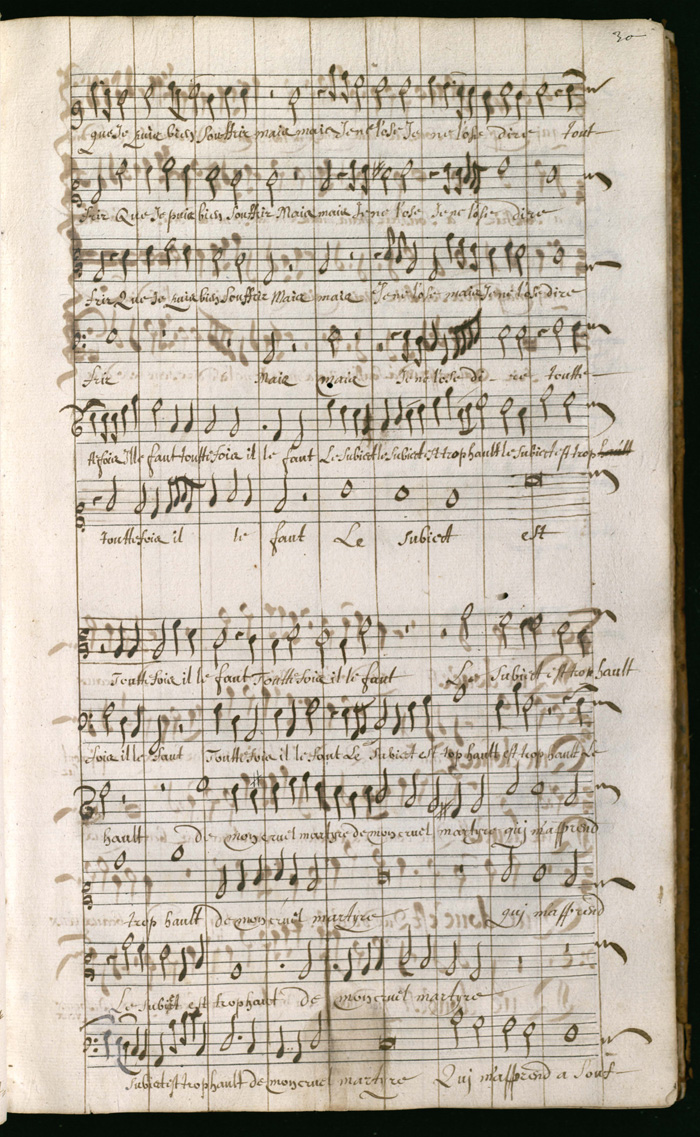 30
que Je puis bien souffrir mais mais Je ne l'ose Je ne l'ose dire tout
frir Que Je puis bien souffrir Mais mais Je ne l'ose Je ne l'ose dire
frir Que Je puis bien souffrir Mais mais Je ne l'ose mais Je ne l'ose dire
frir Mais mais Je ne l'ose di re toutte
Il le faut touttefois il le faut Le subiect le subiect est trop hault le subiect est trop hault
touttefois il le faut Le subiect est
Touttefois il le faut Touttefois il le faut Le subiect est trop hault
fois il le faut Touttefois il le faut Le subiect est trop hault est trop hault Le
hault de mon cruel martyre de mon cruel martyre qui m'apprend
trop hault de mon cruel martyre qui m'apprend
Le subiect est trop haut de mon cruel martyre
subiect est trop hault de mon cruel martyre Qui m'apprend a souf